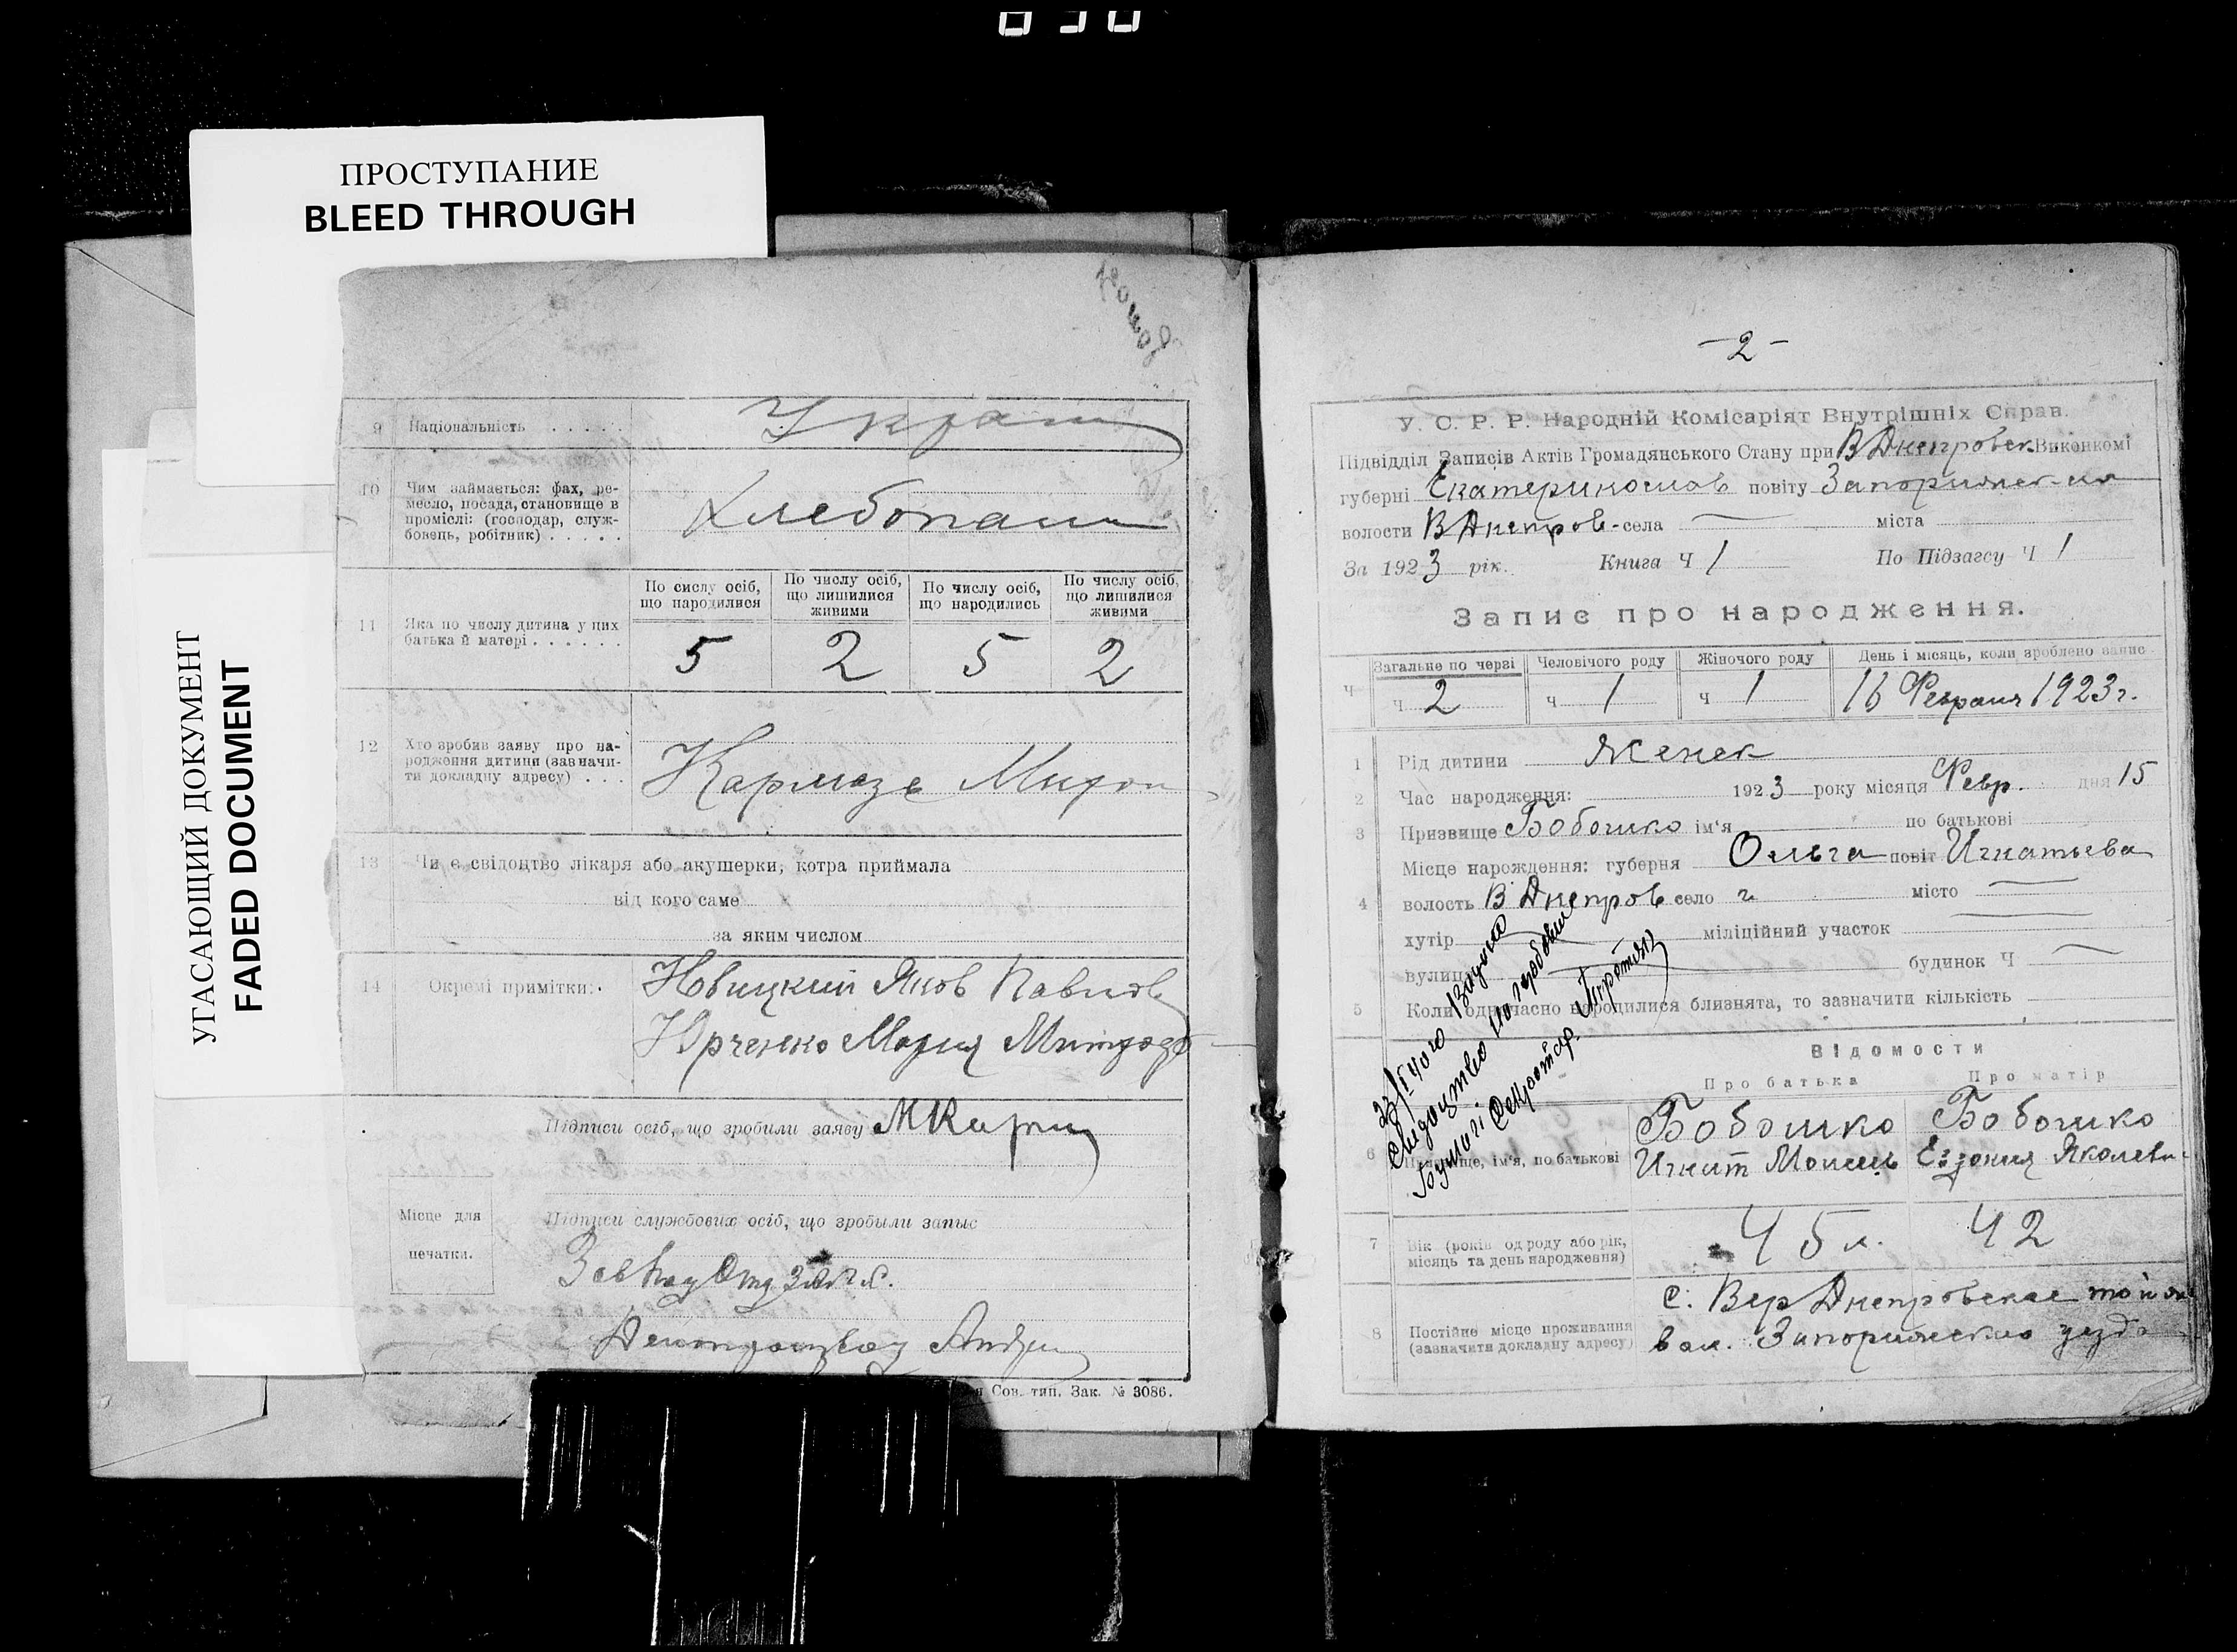 ПРОСТУПАНИЕ
BLEED THROUGH
УГАСАЮЩИЙ ДОКУМЕНТ
FADED DOCUMENT
9 Національність . . . . . Украин
10 Чим займається: фах, ре-
месло, посада, становище в
проміслі: (господар, служ-
бовець, робітник) . . . . . Хлебопаш
По сислу осіб, що народилися
По числу осіб, що лишилися живими
По числу осіб, що народились
По числу осіб, що лишилися живими
11 Яка по числу дитина у цих
батька й матері . . . . . .
5 2 5 2
12 Хто зробив заяву про на-
родження дитини (зазначи-
ти докладну адресу) . . . Кармазь Мирон
13 Чи є свідоцтво лікаря або акушерки, котра приймала
від кого саме
за яким числом
14 Окремі примітки: Новицкий Яков Павлов
Юрченко Мария Митроф
Підписи осіб, що зробили заяву МКарм
Місце для
печатки.
Підписи службових осіб, що зробыли запыс
Андре
Сов. тип. Зак. № 3086.
— 2 —
У. С. Р. Р. Народній Комісаріят Внутрішніх Справ.
Підвідділ Записів Актів Громадянського Стану при ВДнепровск Виконкомі
губерні Екатеринослав повіту Запорижск-
волости ВДнепров- села — міста
За 1923 рік. Книга Ч 1 По Підзагсу Ч 1
Запис про народження.
Загальне по черзі Человічого роду Жіночого роду День і місяць, коли зроблено запис
Ч ч 2 ч 1 ч 1 16 Февраля 1923 г.
1 Рід дитини Женск
2 Час народження: 1923 року місяця Февр. дня 15
3 Призвище Бобошко ім'я по батькові
Місце нарождення: губерня Ольга повіт Игнатьева
4 волость ВДнепров село г. місто —
хутір міліційний участок —
вулиця будинок Ч —
5 Коли одночасно народилися близнята, то зазначити кількість
Свідоцтво
Секретар.
Відомости
Про батька Про матір
6 Призвище, ім'я, по батькові
Бобошко Бобошко
Игнат Моисеь Евдокия Яколевн
7 Вік (років од роду або рік,
місяць та день народження) 45 л. 42
8 Постійне місце проживання
(зазначити докладну адресу)
с. Вер Днепровское той же
вол. Запорижскио уезд